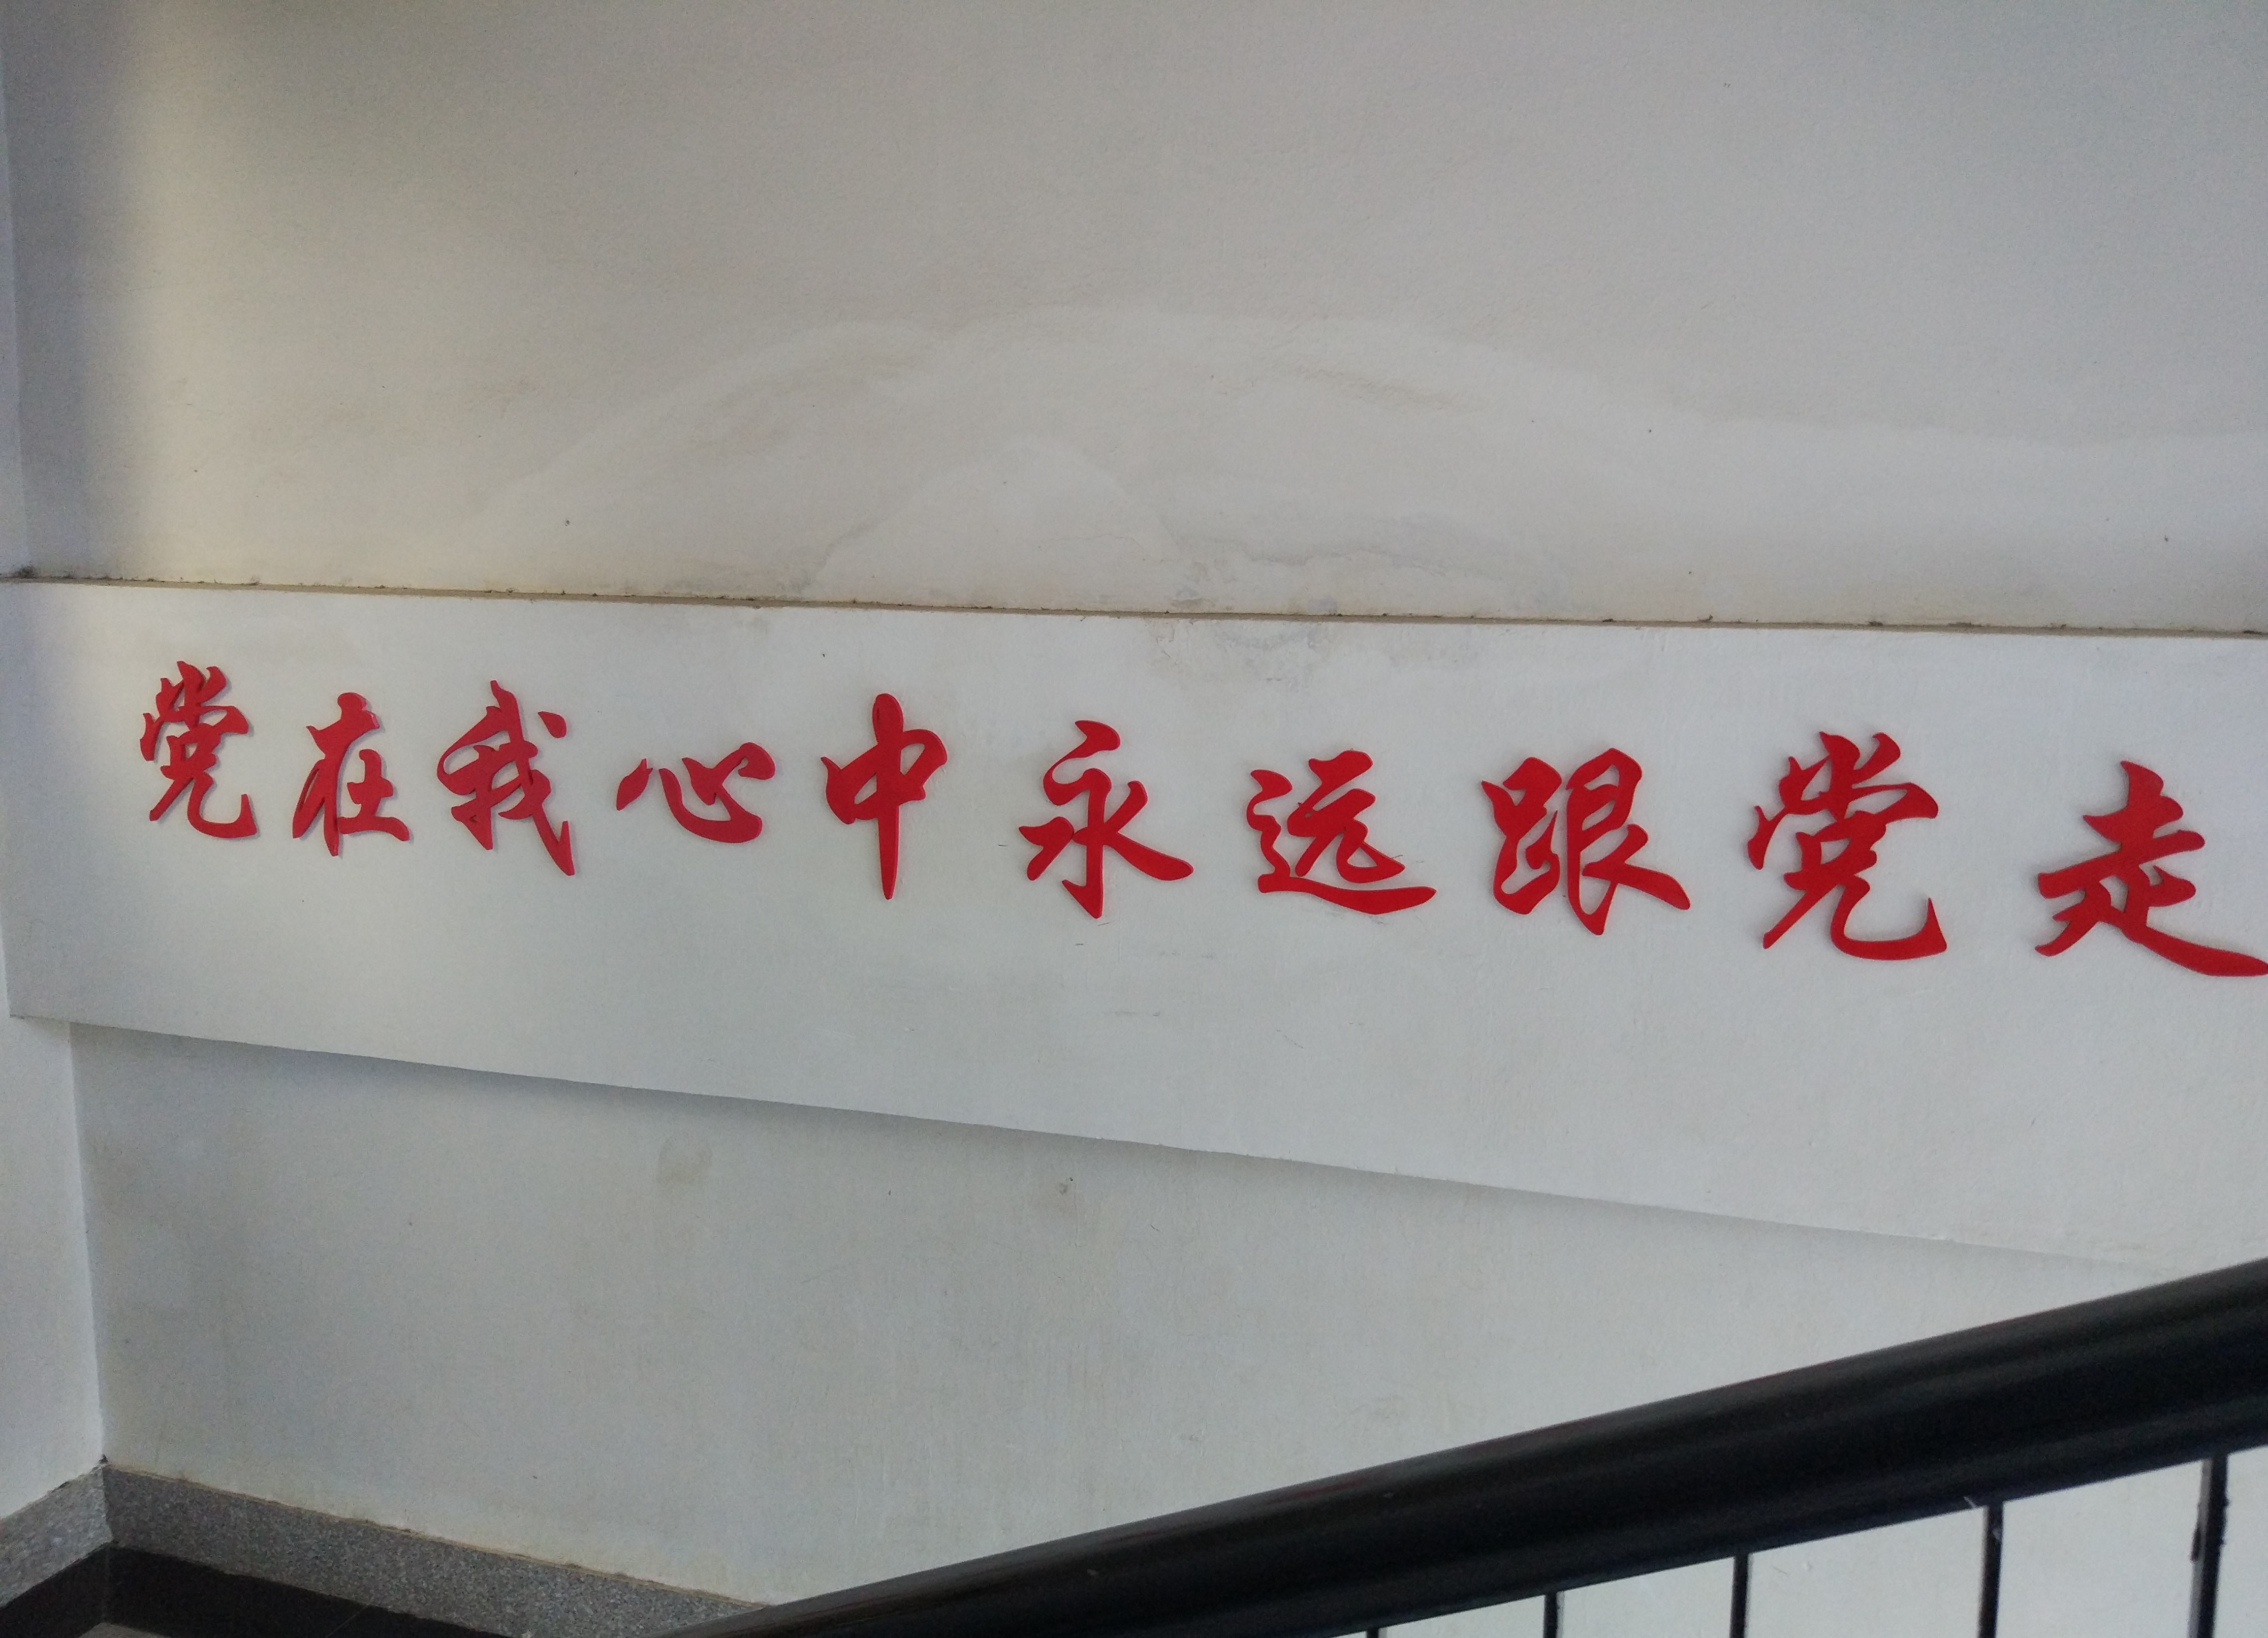 党在我心中永远跟党走